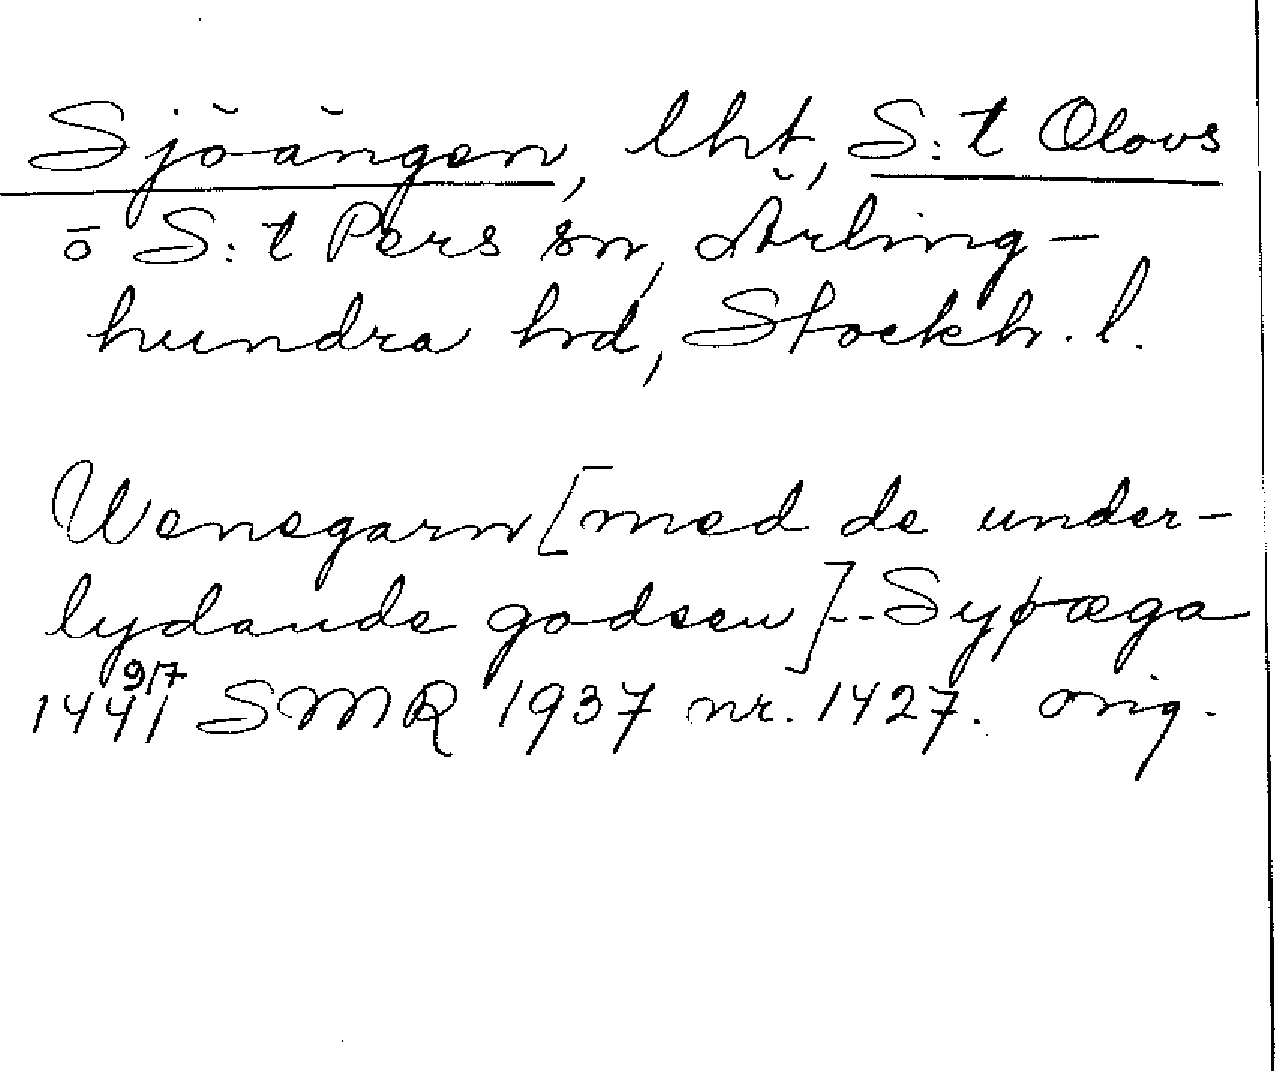 Sjöängen, lht, S:t Olovs
o S:t Pers sn, Ärling-
hundra hd, Stockh. l.
Wenegarn [med de under-
lydande godsen]-- Syøæga
1441 9/7 SMR 1937 nr. 1427. orig.